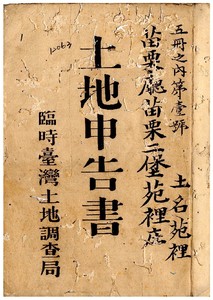 五冊之內第壹號
土名苑裡
苗栗廳苗栗二堡苑裡庄
土地申告書
臨時臺灣土地調查局